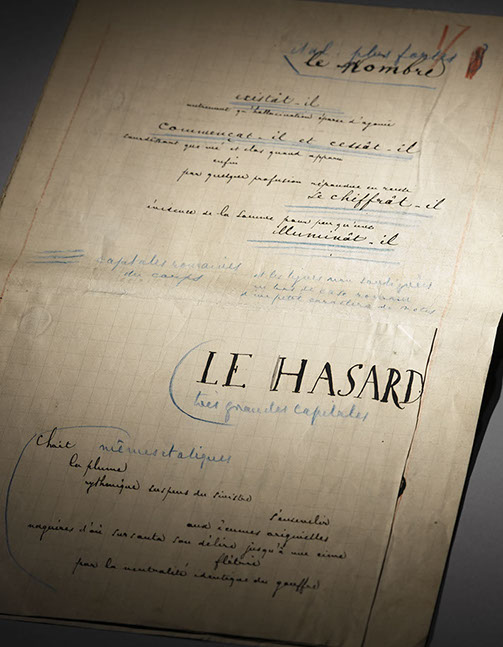 ital : plus fortes
le Nombre
existât-il
autrement qu'hallucination éparse d'agonie
commençât-il et cessât-il
sourdant que nié et clos quand apparu
enfin
par quelque profusion répandue en rareté
se chiffrât-il
évidence de la somme pour peu qu'une
illuminât-il
capitales romaines
du corps
et les lignes non soulignées
bas de casse romain
d'un petit caractère de notes
LE HASARD
très grandes capitales
Choit mêmes italiques
la plume
rythmique suspens du sinistre
s'ensevelir
aux écumes originelles
naguères d'où sursauta son délire jusqu'à une cime
flétrie
par la neutralité identique du gouffre